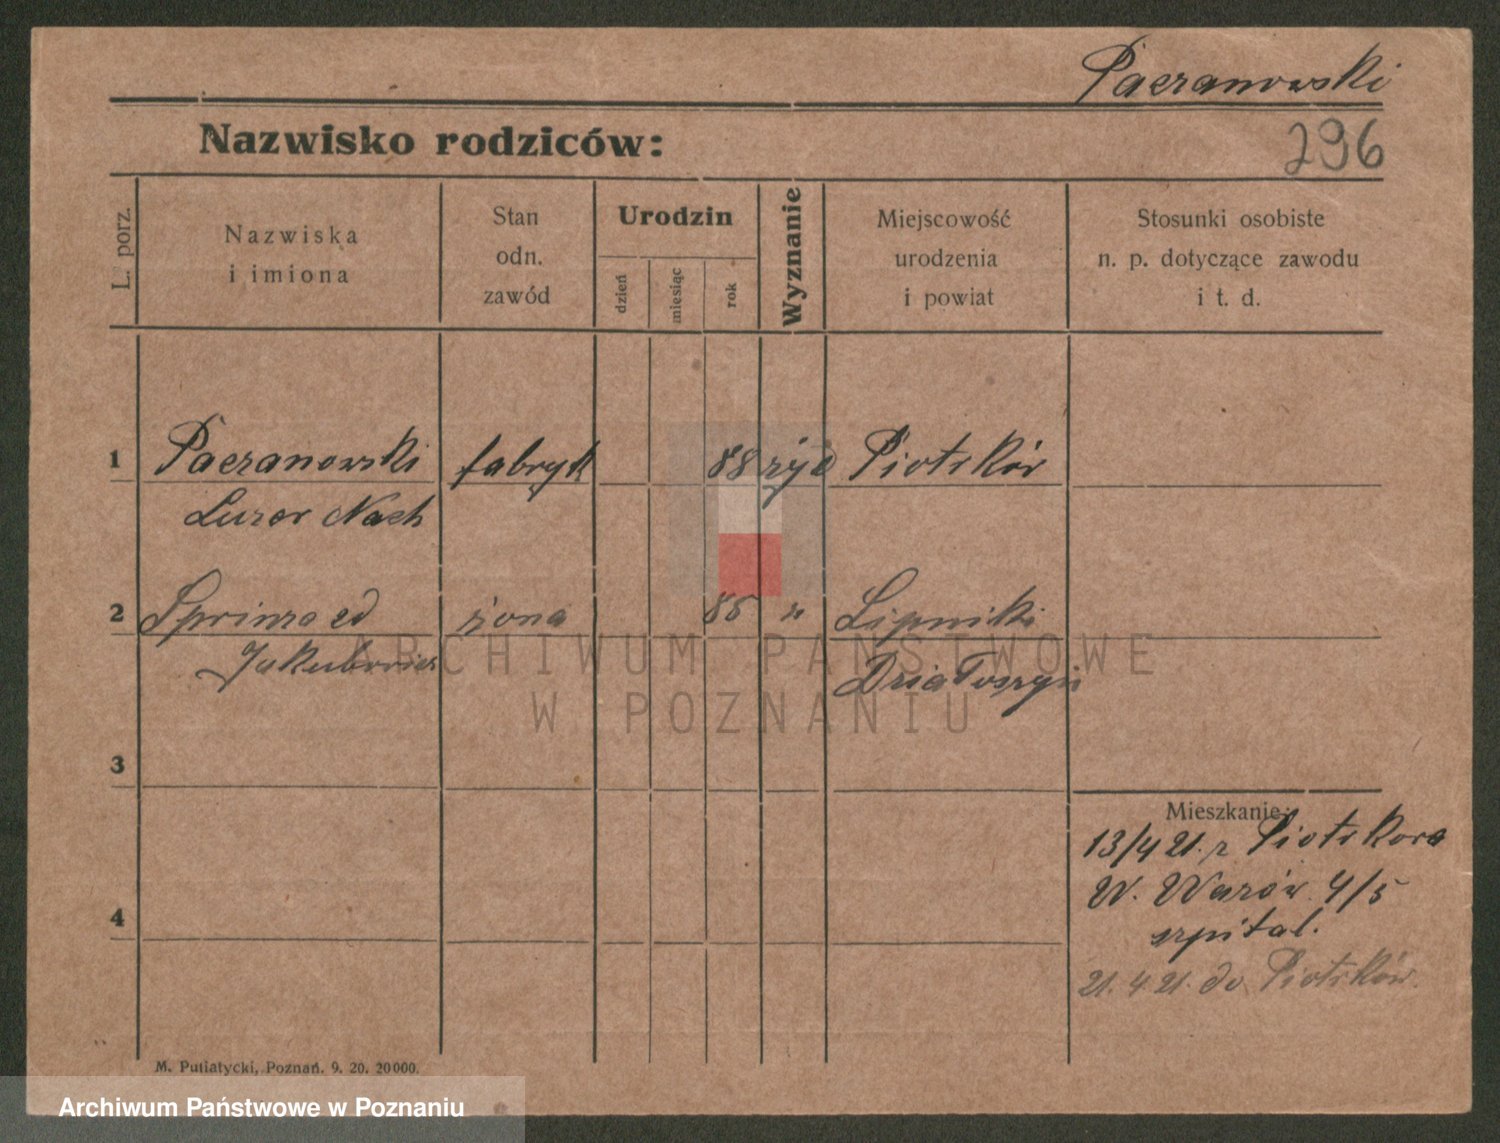 Paeranowski
296
Nazwisko rodziców:
L. porz.
Nazwiska
i imiona
Stan
odn.
zawód
Urodzin
dzień
miesiąc
rok
Wyznanie
Miejscowość
urodzenia
i powiat
Stosunki osobiste
n. p. dotyczące zawodu
i t. d.
1 Paeranowski fabryk 88 żyd Piotrków
Luzer
2 żona 86 " Lipniki
Jakubowicz Działoszyn
3
4
Mieszkanie:
13/4 21. z Piotrkowa
W. 4/5
szpital.
21. 4. 21. do Piotrków.
M. Putiatycki, Poznań. 9. 20. 20 000.
ARCHIWUM PAŃSTWOWE
W POZNANIU
Archiwum Państwowe w Poznaniu